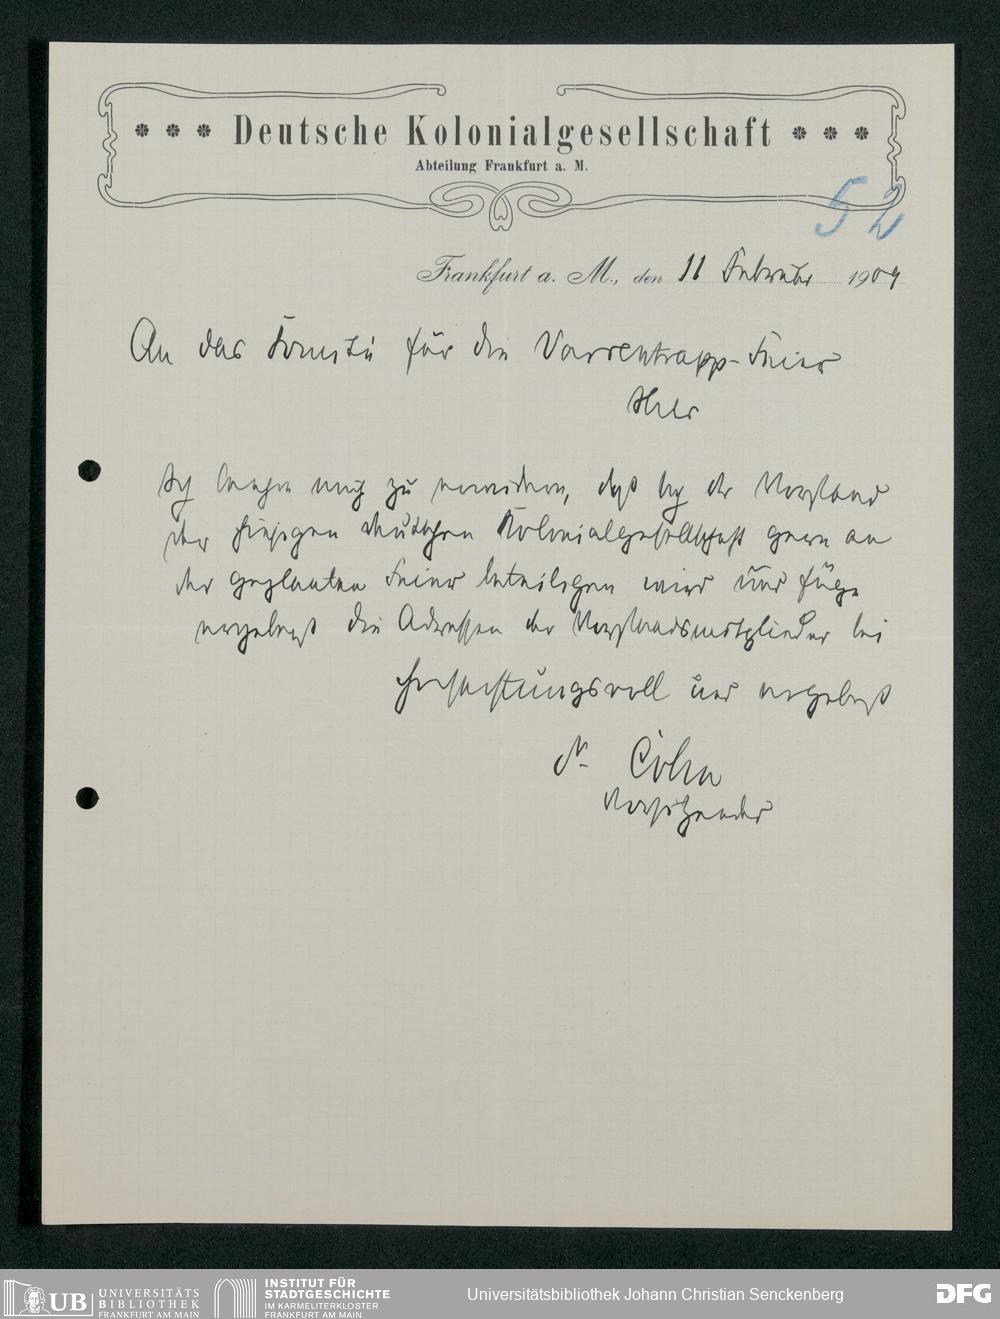 Deutsche Kolonialgesellschaft
Abteilung Frankfurt a. M.
52
Frankfurt a. M., den 11 Februar 1909
An das Komité für die Varrentrapp-Feier
Hier
Ich beehre mich zu erwidern, daß sich der Vorstand
der hiesigen deutschen Kolonialgesellschaft gern an
der geplanten Feier beteiligen wird und füge
ergebenst die Adressen der Vorstandsmitglieder bei
Hochachtungsvoll und ergebenst
Dr. Cohn
Vorsitzender
UB UNIVERSITÄTS
BIBLIOTHEK
FRANKFURT AM MAIN
INSTITUT FÜR
STADTGESCHICHTE
IM KARMELITERKLOSTER
FRANKFURT AM MAIN
Universitätsbibliothek Johann Christian Senckenberg
DFG